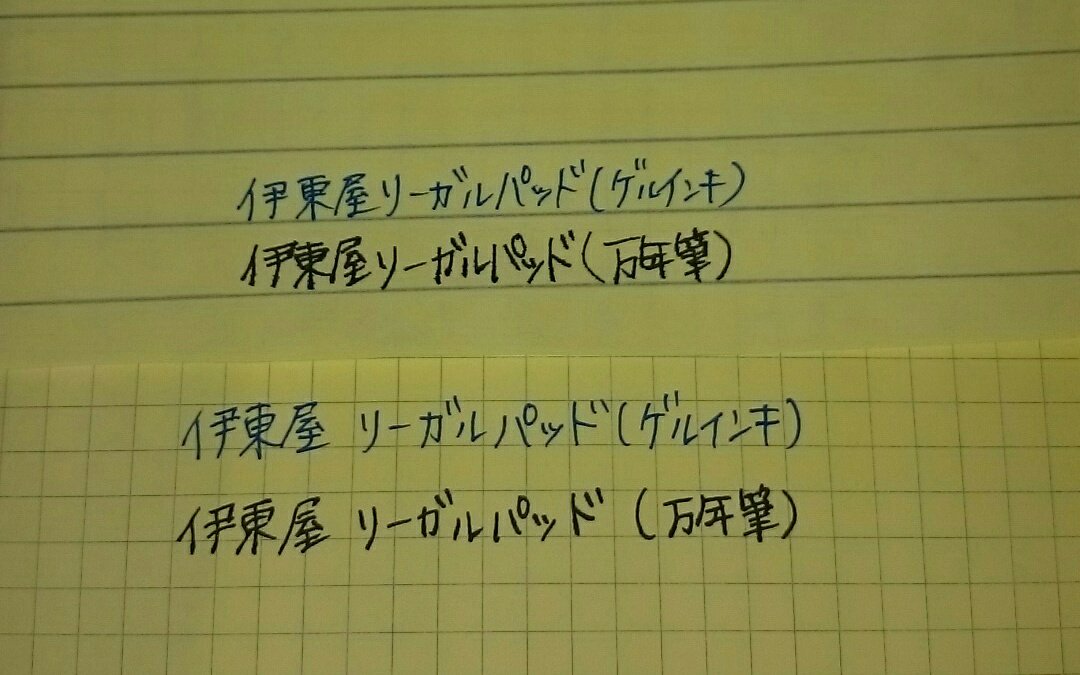 伊東屋リーガルパッド(ゲルインキ)
伊東屋リーガルパッド(万年筆)
伊東屋 リーガルパッド(ゲルインキ)
伊東屋 リーガルパッド(万年筆)